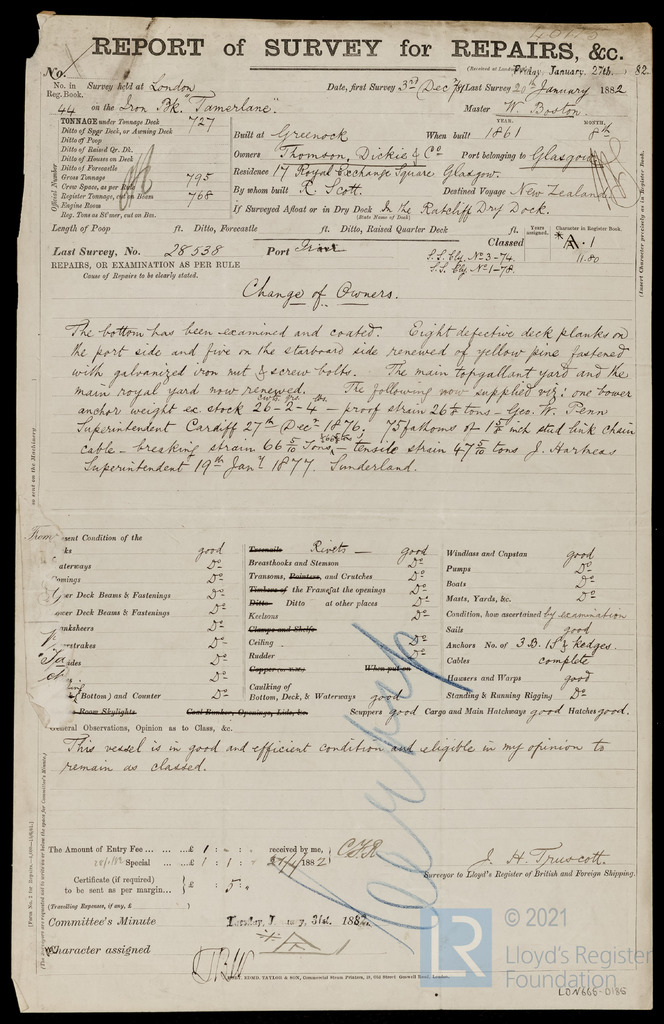 REPORT of SURVEY for REPAIRS, &c.
No.
(Received at London Friday, January, 27th. 1882.
No. in Reg. Book. Survey held at London Date, first Survey 3rd Decr 81 Last Survey 20th January 1882
44 on the Iron Bk. "Tamerlane". Master W. Boston.
TONNAGE under Tonnage Deck 727
Ditto of Spar Deck, or Awning Deck
Ditto of Poop
Ditto of Raised Qr. Dk.
Ditto of Houses on Deck
Ditto of Forecastle
Gross Tonnage 795
Crew Space, as per Rule
Register Tonnage, cut on Beam 768
Engine Room
Reg. Tons as St'mer, cut on Bm.
Official Number
YEAR. MONTH.
Built at Greenock When built 1861 8th
Owners Thomson, Dickie & Co Port belonging to Glasgow
Residence 17 Royal Exchange Square Glasgow.
By whom built R. Scott. Destined Voyage New Zealand
If Surveyed Afloat or in Dry Dock In the Ratcliff Dry Dock.
(State Name of Dock)
Length of Poop ft. Ditto, Forecastle ft. Ditto, Raised Quarter Deck ft.
Years assigned. Character in Register Book.
Classed *A.1
11.80
Last Survey, No. 28538 Port
S.S. Gly. No 3-74.
S.S. Gly No 1-78.
REPAIRS, OR EXAMINATION AS PER RULE
Cause of Repairs to be clearly stated.
(Insert Character precisely as in Register Book.
Change of Owners.
The bottom has been examined and coated. Eight defective deck planks on
the port side and five on the starboard side renewed of yellow pine fastened
with galvanized iron nut & screw bolts. The main topgallant yard and the
main royal yard now renewed. The following now supplied viz: one bower
cwts. qrs. lbs
anchor weight ex. stock 26-2-4 - proof strain 26 tons - Geo. W. Penn
Superintendent Cardiff 27th Decr 1876. 75 fathoms of 1 inch stud link chain
cable - breaking strain 66 5/10 Tons, - tensile strain 47 5/10 tons J. Hartness
Superintendent 19th Jany 1877. Sunderland.
so sent on the Machinery.
sent Condition of the
ks good
aterways Do
omings Do
er Deck Beams & Fastenings Do
wer Deck Beams & Fastenings Do
anksheers Do
erstrakes Do
ades Do
Do
(Bottom) and Counter Do
Room Skylights
Coal Bunker, Openings, Lids, &c.
Treenails Rivets - good
Breasthooks and Stemson Do
Transoms, Pointers, and Crutches Do
Timbers of the Frames at the openings Do
Ditto Ditto at other places Do
Keelsons Do
Clamps and Shelfs
Ceiling Do
Rudder Do
Copper When put on
Caulking of
Bottom, Deck, & Waterways good
Windlass and Capstan good
Pumps Do
Boats Do
Masts, Yards, &c. Do
Condition, how ascertained by examination
Sails good
Anchors No. of 3.B. 1S & kedges.
Cables complete
Hawsers and Warps good
Standing & Running Rigging Do
Scuppers good Cargo and Main Hatchways good Hatches good.
General Observations, Opinion as to Class, &c.
This vessel is in good and efficient condition and eligible in my opinion to
remain as classed.
The Amount of Entry Fee ... £ 1 : received by me,
Special ... £ 1 : 1 : 27/1/1882
Certificate (if required)
to be sent as per margin... £ : 5 :
(Travelling Expenses, if any, £ )
J. H. Truscott.
Surveyor to Lloyd's Register of British and Foreign Shipping.
Committee's Minute Tuesday, January, 31st. 1882.
Character assigned
EDMD. TAYLOR & SON
© 2021
LR
Lloyd's Register
Foundation
LON666-0186